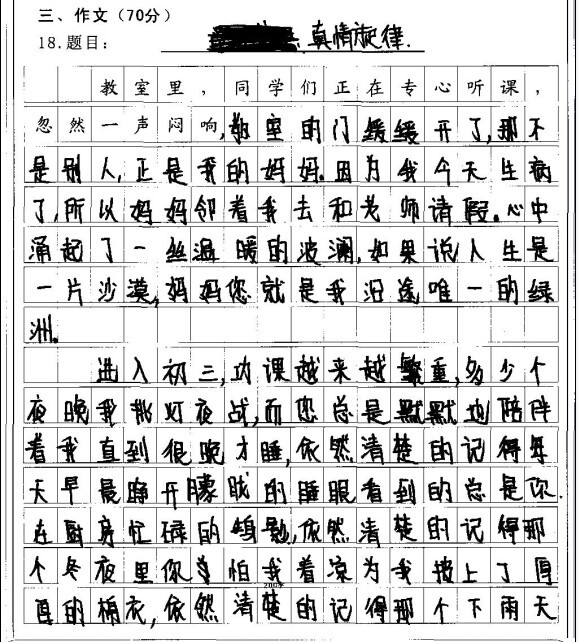 三、作文（70分）
18.题目： 真情旋律.
教室里，同学们正在专心听课，
忽然一声闷响,教室的门缓缓开了,那不
是别人,正是我的妈妈.因为我今天生病
了,所以妈妈邻着我去和老师请假。心中
涌起了一丝温暖的波澜,如果说人生是
一片沙漠,妈妈您就是我沿途唯一的绿
洲.
进入初三,功课越来越繁重,多少个
夜晚我挑灯夜战,而您总是默默地陪伴
着我直到很晚才睡,依然清楚的记得每
天早晨睁开朦胧的睡眼看到的总是你
在厨房忙碌的身影,依然清楚的记得那
个冬夜里你怕我着凉为我披上了厚
厚的棉衣,依然清楚的记得那个下雨天